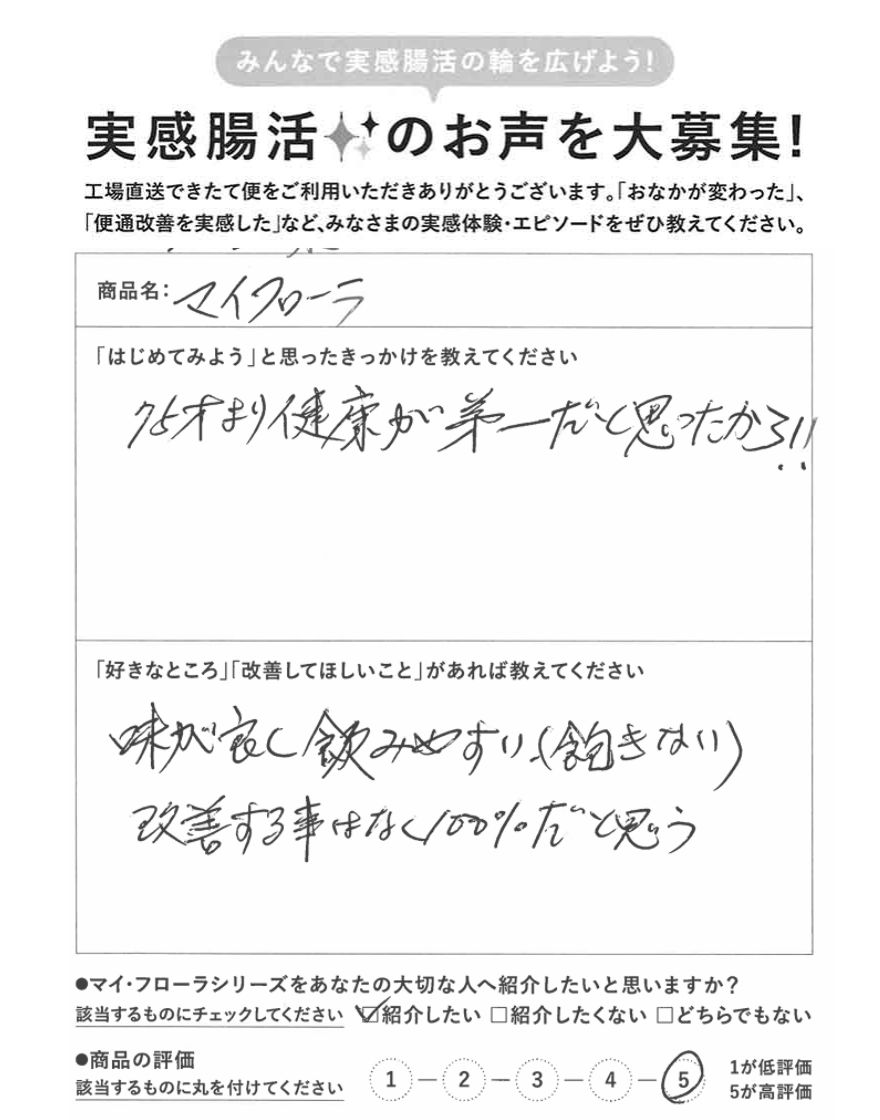 みんなで実感腸活の輪を広げよう!
実感腸活のお声を大募集!
工場直送できたて便をご利用いただきありがとうございます。「おなかが変わった」、
「便通改善を実感した」など、みなさまの実感体験・エピソードをぜひ教えてください。
商品名: マイフローラ
「はじめてみよう」と思ったきっかけを教えてください
75才まり健康が第一だと思ったから!!
「好きなところ」「改善してほしいこと」があれば教えてください
味が良く飲みやすい、(飽きない)
改善する事はなく100%だと思う
●マイ・フローラシリーズをあなたの大切な人へ紹介したいと思いますか?
該当するものにチェックしてください ☑紹介したい □紹介したくない □どちらでもない
●商品の評価
該当するものに丸を付けてください 1 — 2 — 3 — 4 — 5
1が低評価
5が高評価